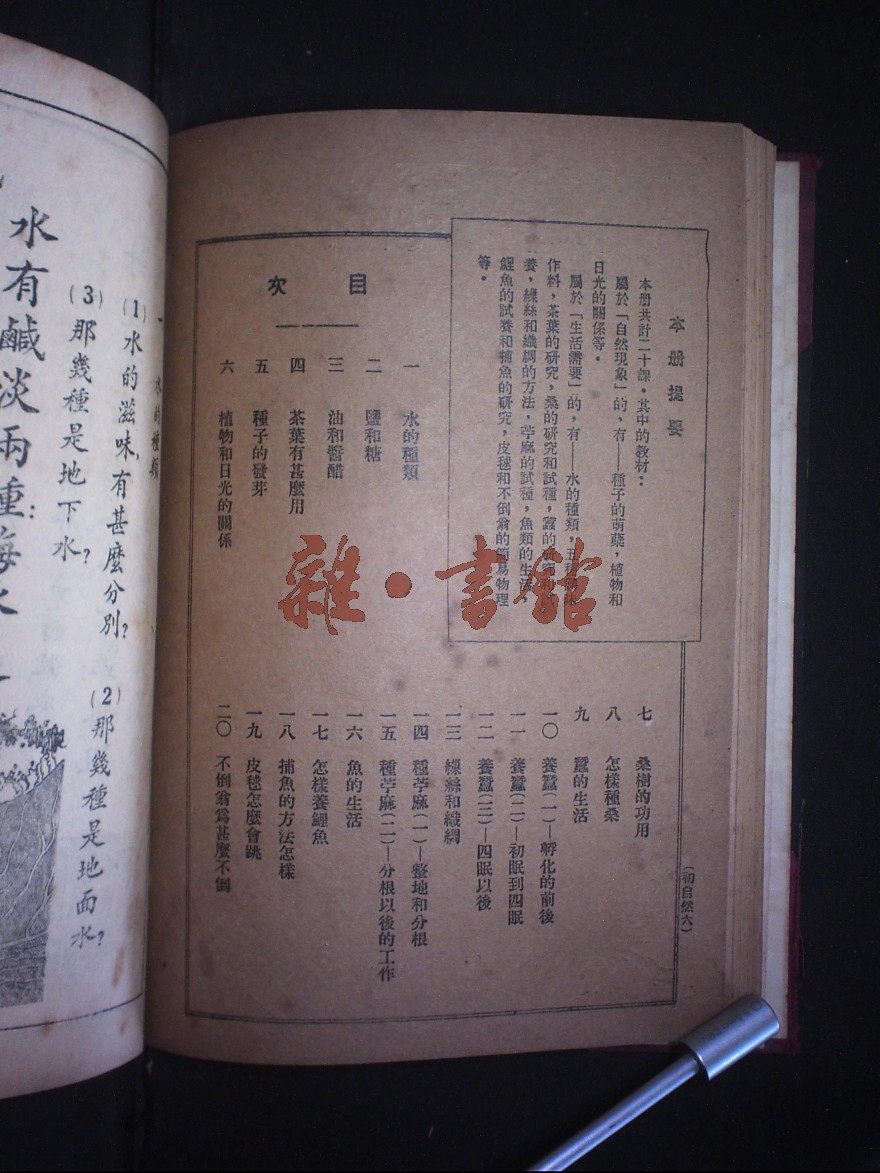 本册提要
本册共計二十課。其中的教材：
屬於「自然現象」的，有——種子的萌蘗，植物和
日光的關係等。
屬於「生活需要」的，有——水的種類，五種
作料，茶葉的研究，桑的研究和試種，蠶的研究和試
養，繅絲和織綢的方法，苧麻的試種，魚類的生活，
鯉魚的試養和捕魚的研究，皮毬和不倒翁的簡易物理
等。
目次
一 水的種類
二 鹽和糖
三 油和醬醋
四 茶葉有甚麼用
五 種子的發芽
六 植物和日光的關係
七 桑樹的功用
八 怎樣種桑
九 蠶的生活
一〇 養蠶(一)—孵化的前後
一一 養蠶(二)—初眠到四眠
一二 養蠶(三)—四眠以後
一三 繅絲和織綢
一四 種苧麻(一)—整地和分根
一五 種苧麻(二)—分根以後的工作
一六 魚的生活
一七 怎樣養鯉魚
一八 捕魚的方法怎樣
一九 皮毬怎麼會跳
二〇 不倒翁爲甚麼不倒
(初自然六)
雜·書館
一 水的種類
(1)水的滋味，有甚麼分別？
(2)那幾種是地面水？
(3)那幾種是地下水？
水有鹹淡兩種：海水